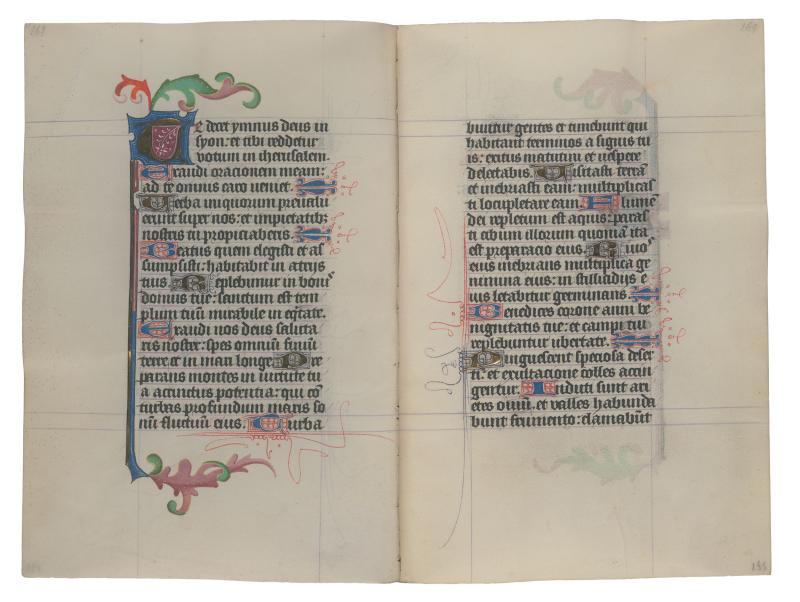 Te decet ymnus deus in
syon: et tibi reddetur
votum in iherusalem.
Exaudi oracionem meam:
ad te omnis caro veniet.
Verba iniquorum prevalu
erunt super nos: et impietatibꝫ
nostris tu propiciaberis.
Beatus quem elegisti et as
sumpsisti: habitabit in atrijs
tuis. Replebimur in bonis
domus tue: sanctum est tem
plum tuū mirabile in eq̄tate.
Exaudi nos deus saluta
ris noster: spes omniū finiū
terre et in mari longe. Pre
parans montes in virtute tu
a accinctus potentia: qui cō
turbas profundum maris so
nū fluctuū eius. Turba
buntur gentes et timebunt qui
habitant terminos a signis tu
is: exitus matutini et vespere
delectabis. Visitasti terrā
et inebriasti eam: multiplicas
ti locupletare eam. Flumē
dei repletum est aquis: paras
ti cibum illorum quoniā ita
est preparacio eius. Rivos
eius inebrians multiplica ge
nimina eius: in stillicidijs e
ius letabitur germinans.
Benedices corone anni be
nignitatis tue: et campi tui
replebuntur ubertate.
Pinguescent speciosa deser
ti: et exultacione colles accin
gentur. Induti sunt ari
etes oviū. et valles habunda
bunt frumento: clamabūt